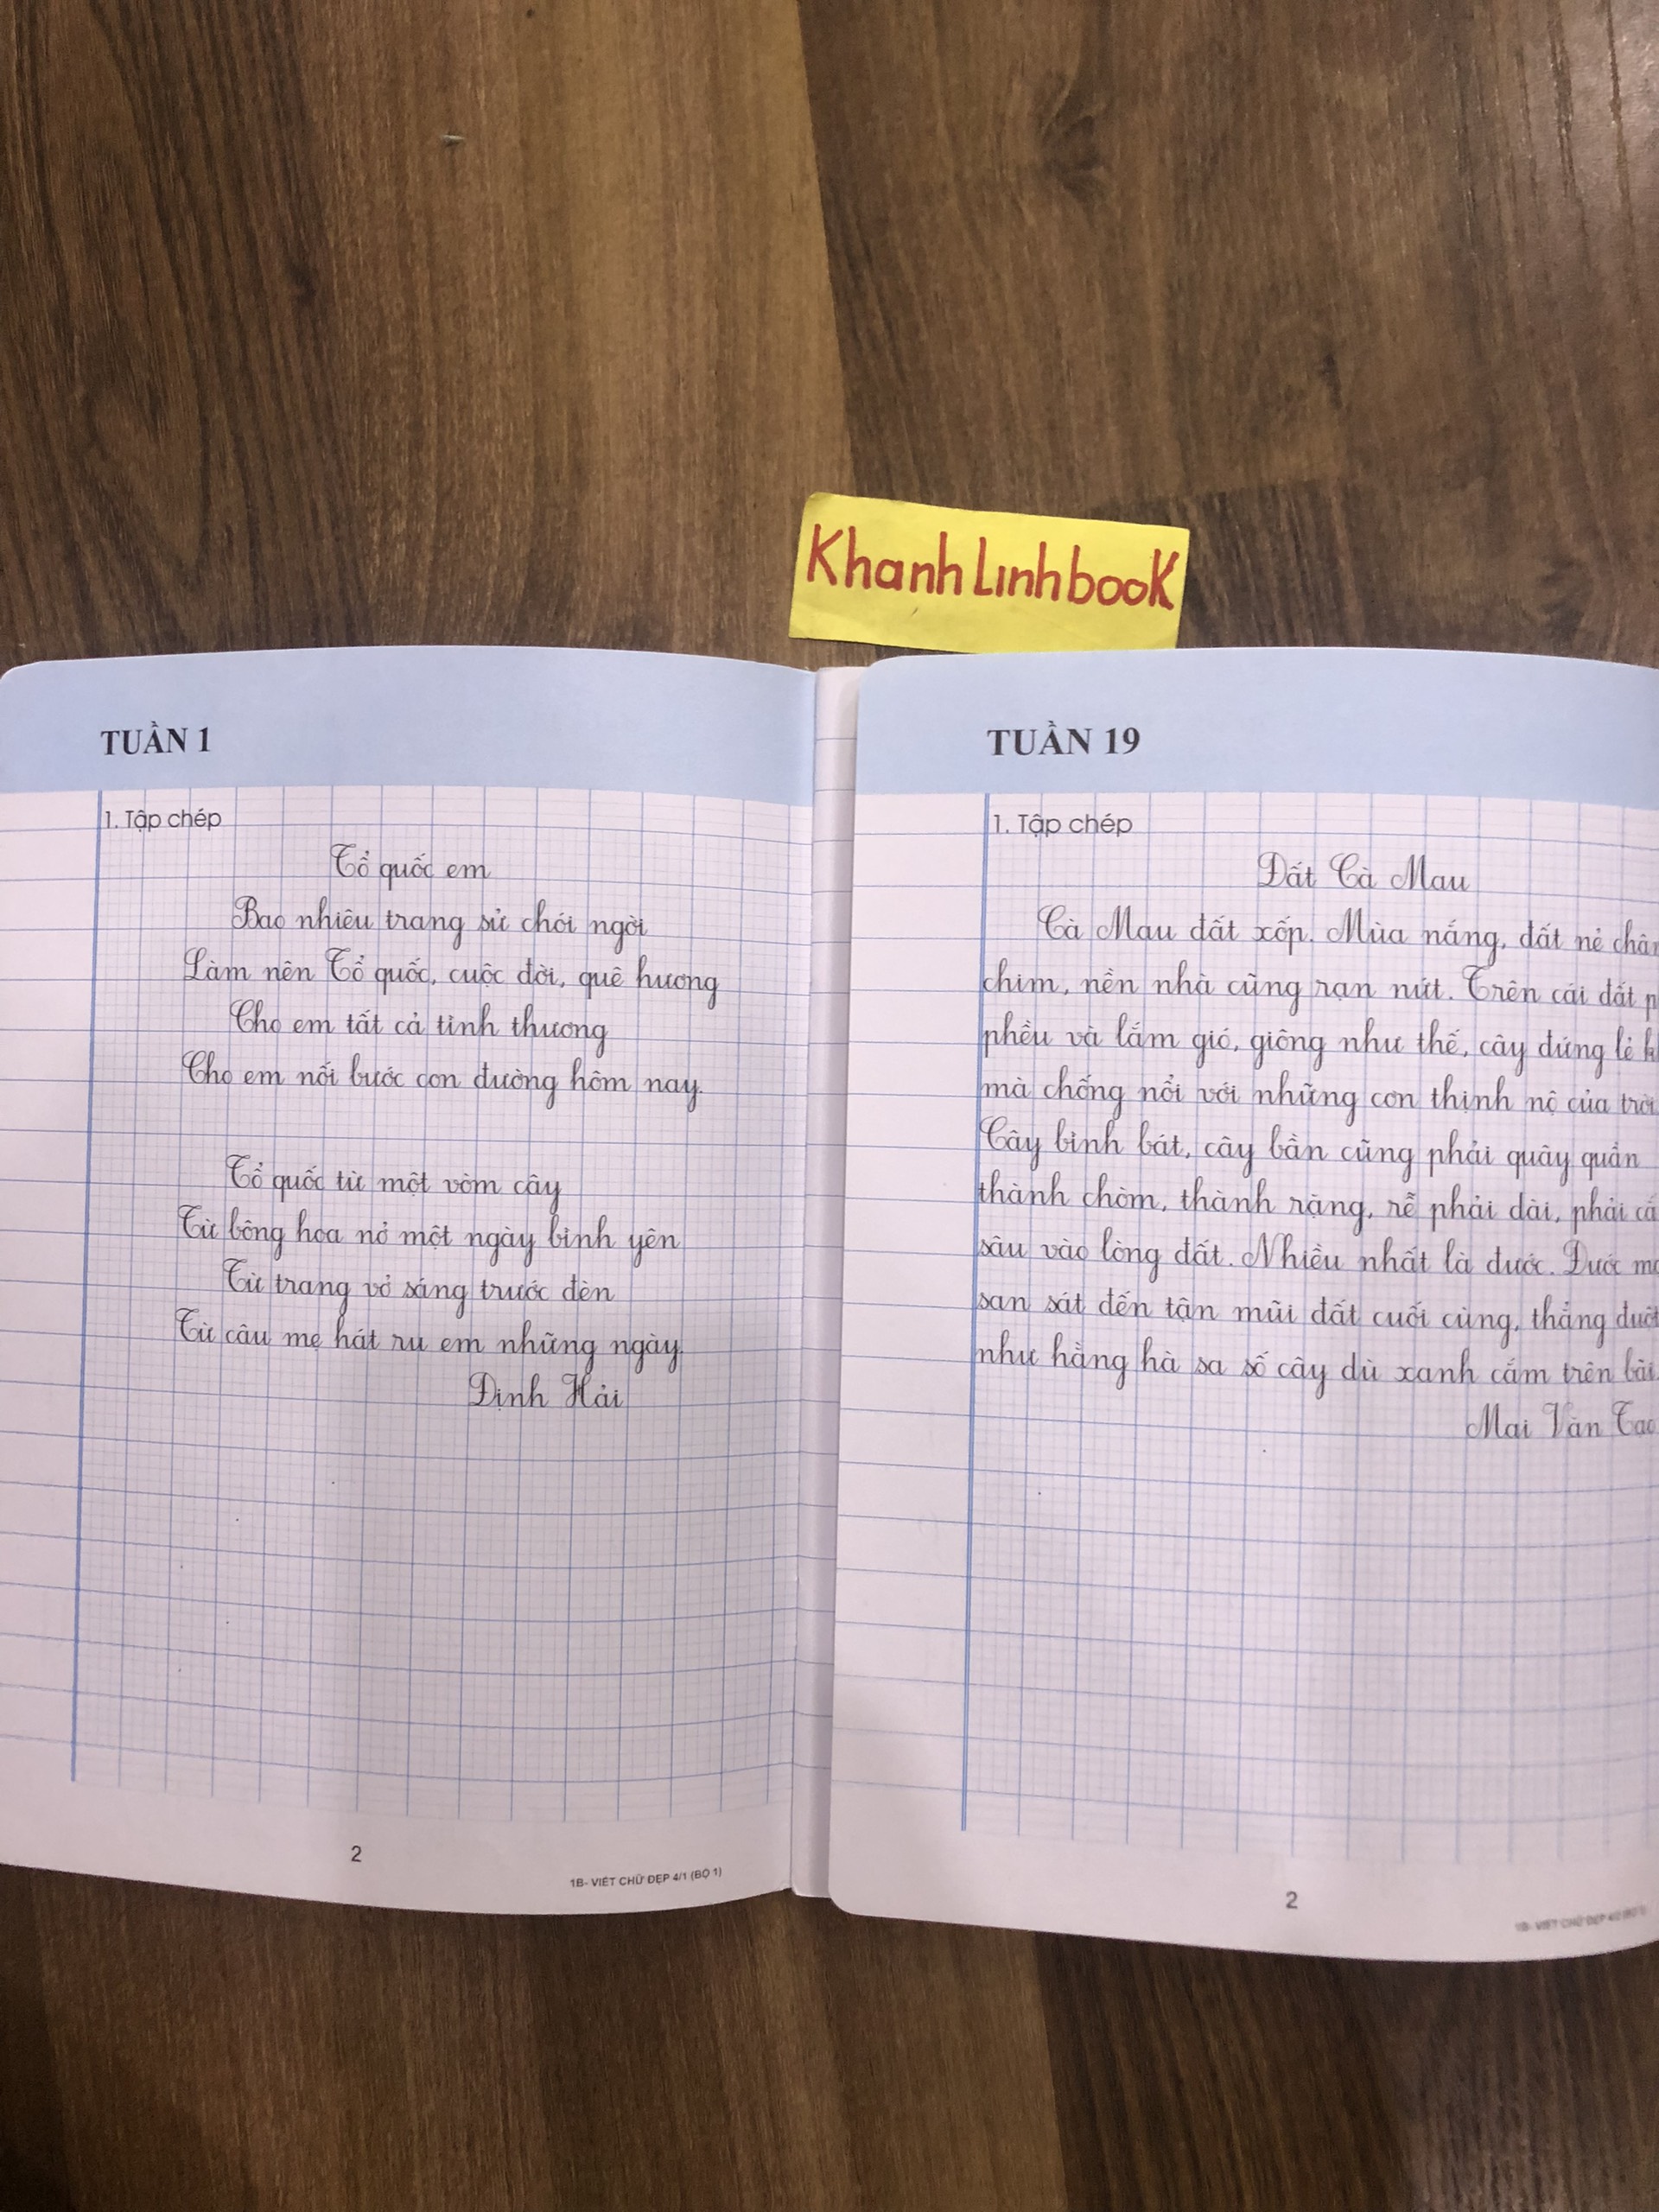 KhanhLinhbook
TUẦN 1
1. Tập chép
Tổ quốc em
Bao nhiêu trang sử chói ngời
Làm nên Tổ quốc, cuộc đời, quê hương
Cho em tất cả tình thương
Cho em nối bước con đường hôm nay.
Tổ quốc từ một vòm cây
Từ bông hoa nở một ngày bình yên
Từ trang vở sáng trước đèn
Từ câu mẹ hát ru em những ngày.
Định Hải
2
1B- VIẾT CHỮ ĐẸP 4/1 (BỘ 1)
TUẦN 19
1. Tập chép
Đất Cà Mau
Cà Mau đất xốp. Mùa nắng, đất nẻ chân
chim, nền nhà cũng rạn nứt. Trên cái đất p
phều và lắm gió, giông như thế, cây đứng lẻ k
mà chống nổi với những cơn thịnh nộ của trời.
Cây bình bát, cây bần cũng phải quây quần
thành chòm, thành rặng, rễ phải dài, phải cắ
sâu vào lòng đất. Nhiều nhất là đước. Đước mọ
san sát đến tận mũi đất cuối cùng, thẳng đuột
như hằng hà sa số cây dù xanh cắm trên bãi.
Mai Văn Tạo
2
1B- VIẾT CHỮ ĐẸP 4/2 (BỘ 1)